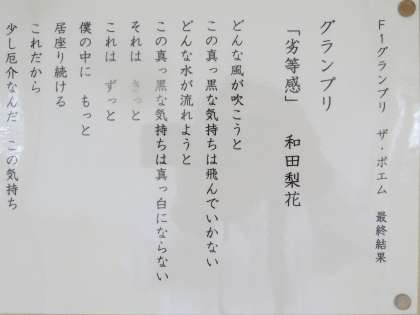 F1グランプリ ザ・ポエム 最終結果
グランプリ
「劣等感」 和田梨花
どんな風が吹こうと
この真っ黒な気持ちは飛んでいかない
どんな水が流れようと
この真っ黒な気持ちは真っ白にならない
それは きっと
これは ずっと
僕の中に もっと
居座り続ける
これだから
少し厄介なんだ この気持ち